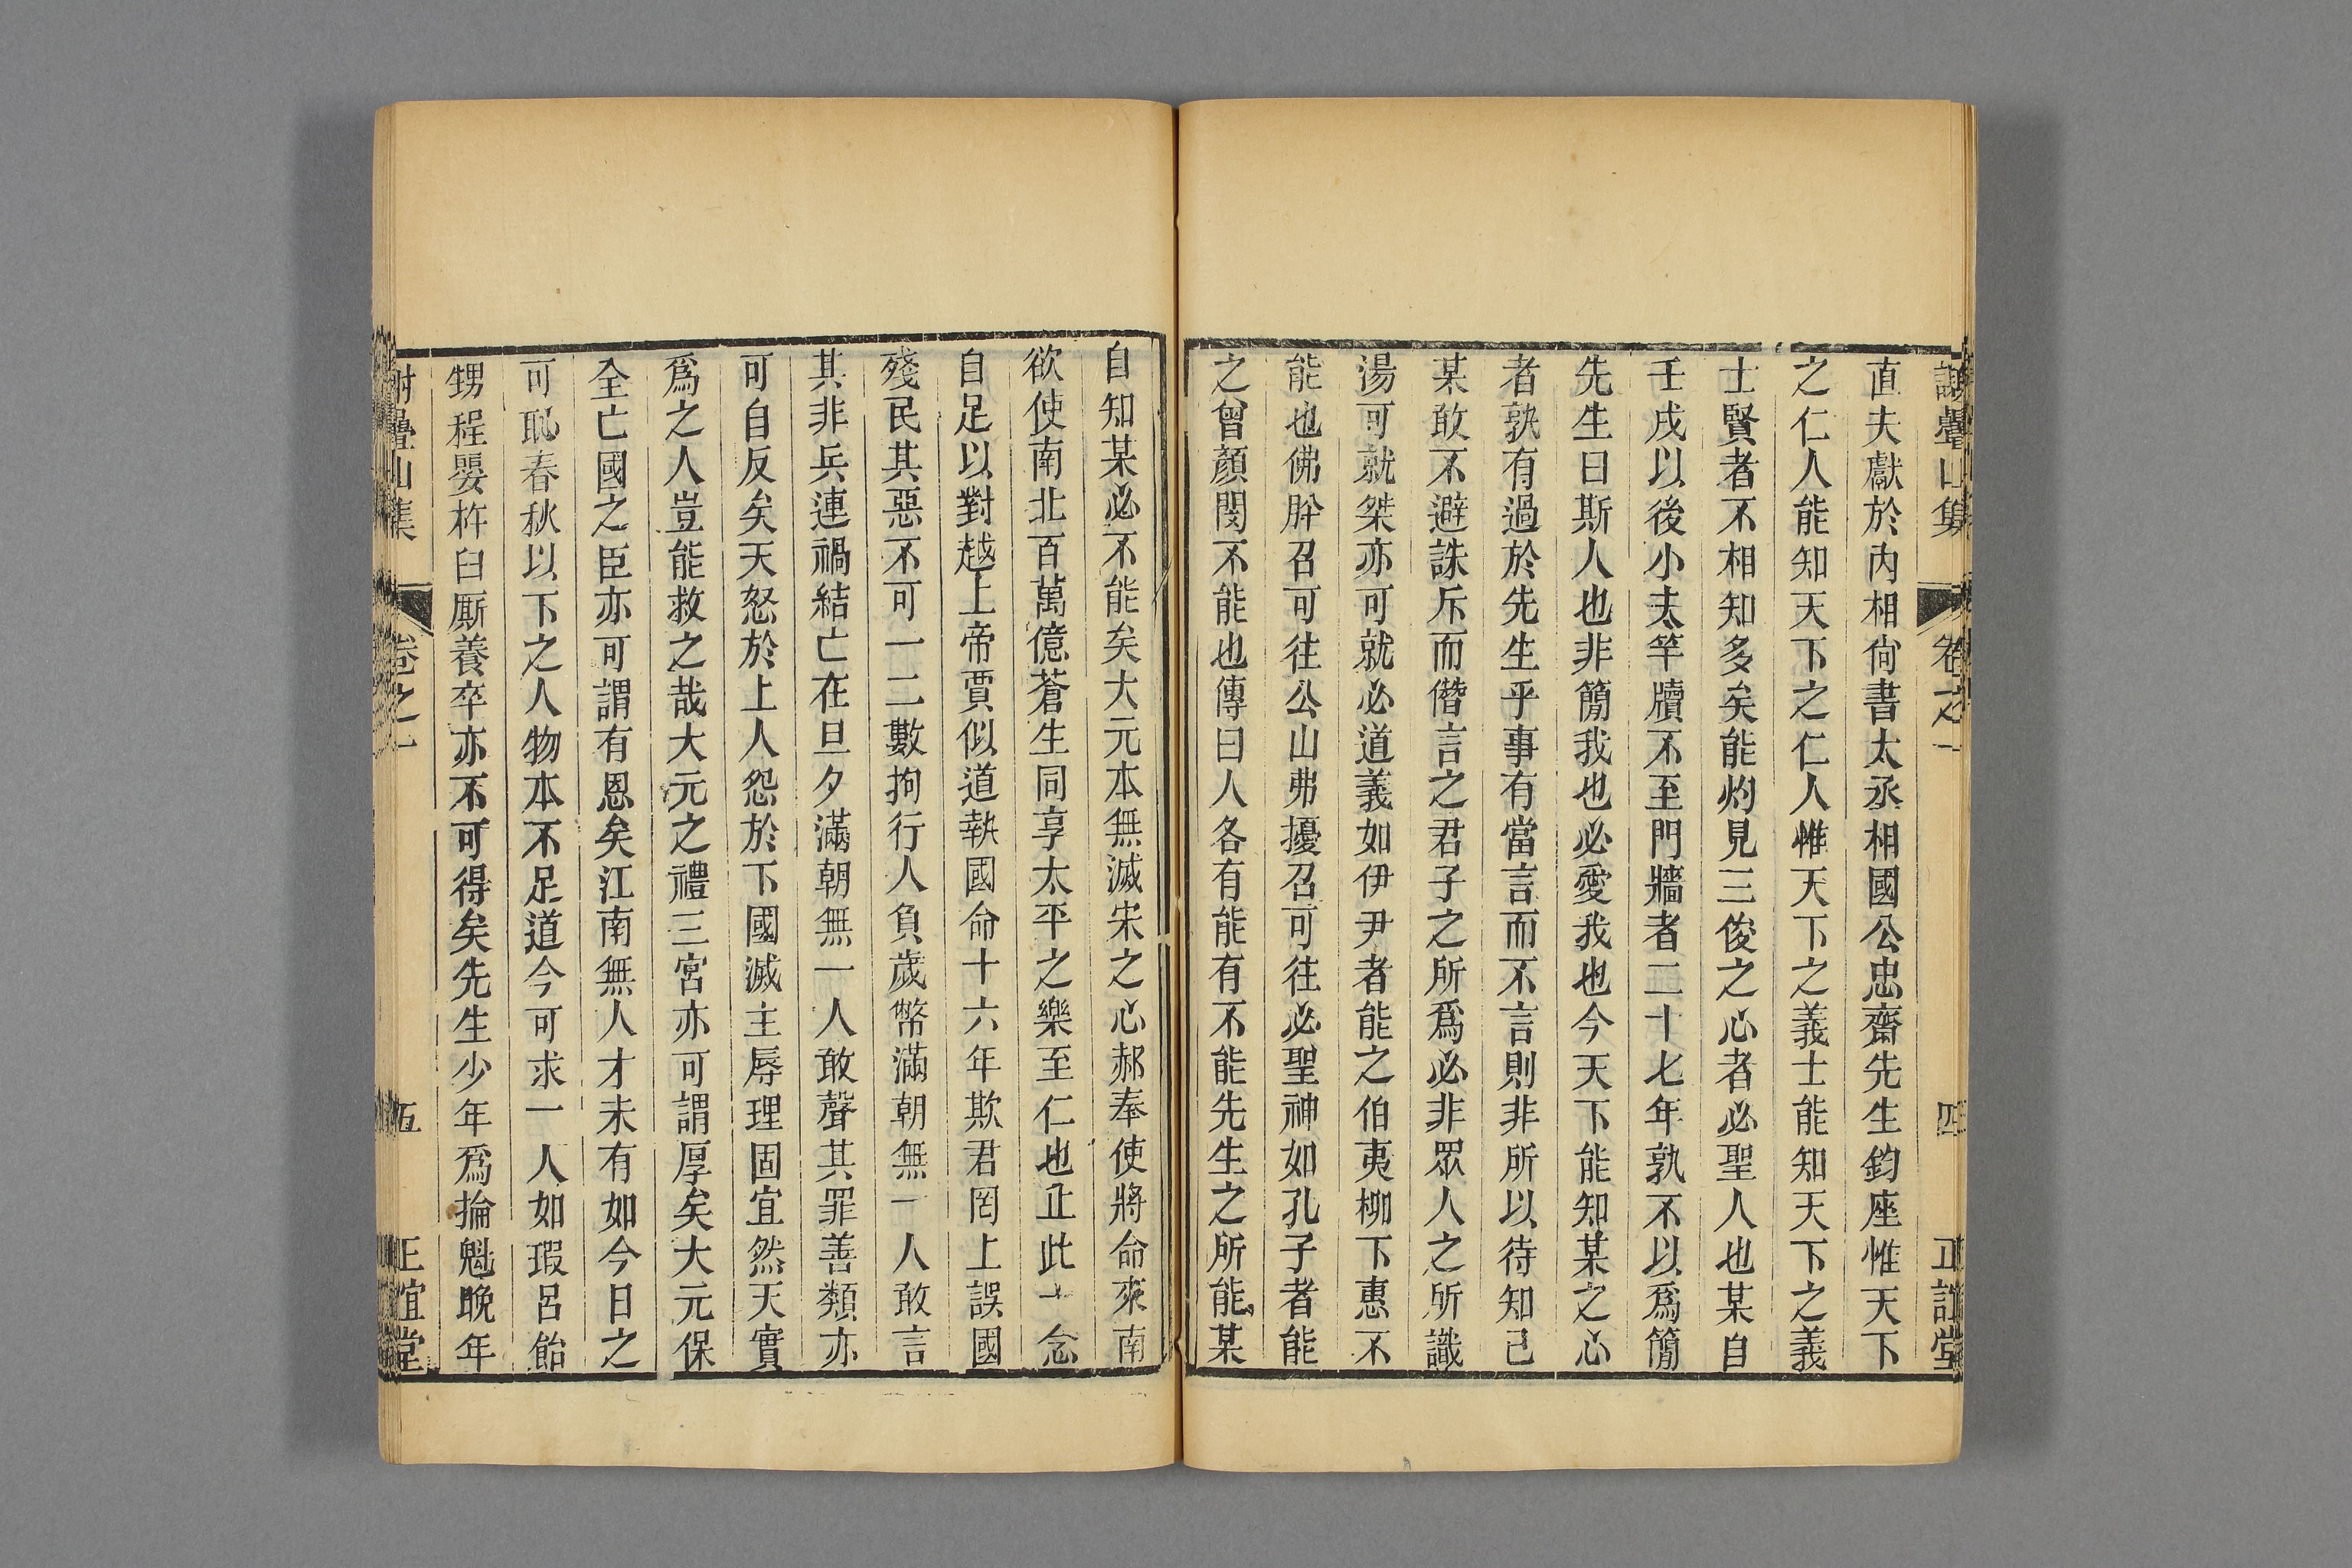 謝疊山集 卷之一 四 正誼堂
直夫獻於內相尙書太丞相國公忠齋先生鈞座惟天下
之仁人能知天下之仁人惟天下之義士能知天下之義
士賢者不相知多矣能灼見三俊之心者必聖人也某自
壬戌以後小夫竿牘不至門牆者二十七年孰不以爲簡
先生曰斯人也非簡我也必愛我也今天下能知某之心
者孰有過於先生乎事有當言而不言則非所以待知己
某敢不避誅斥而僭言之君子之所爲必非眾人之所識
湯可就桀亦可就必道義如伊尹者能之伯夷柳下惠不
能也佛肸召可往公山弗擾召可往必聖神如孔子者能
之曾顏閔不能也傳曰人各有能有不能先生之所能某
自知某必不能矣大元本無滅宋之心郝奉使將命來南
欲使南北百萬億蒼生同享太平之樂至仁也止此一念
自足以對越上帝賈似道執國命十六年欺君罔上誤國
殘民其惡不可一二數拘行人負歲幣滿朝無一人敢言
其非兵連禍結亡在旦夕滿朝無一人敢聲其罪善類亦
可自反矣天怒於上人怨於下國滅主辱理固宜然天實
爲之人豈能救之哉大元之禮三宮亦可謂厚矣大元保
全亡國之臣亦可謂有恩矣江南無人才未有如今日之
可恥春秋以下之人物本不足道今可求一人如瑕呂飴
甥程嬰杵臼厮養卒亦不可得矣先生少年爲掄魁晚年
謝疊山集 卷之一 五 正誼堂